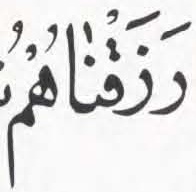 رَزَقْنَاهُمْ